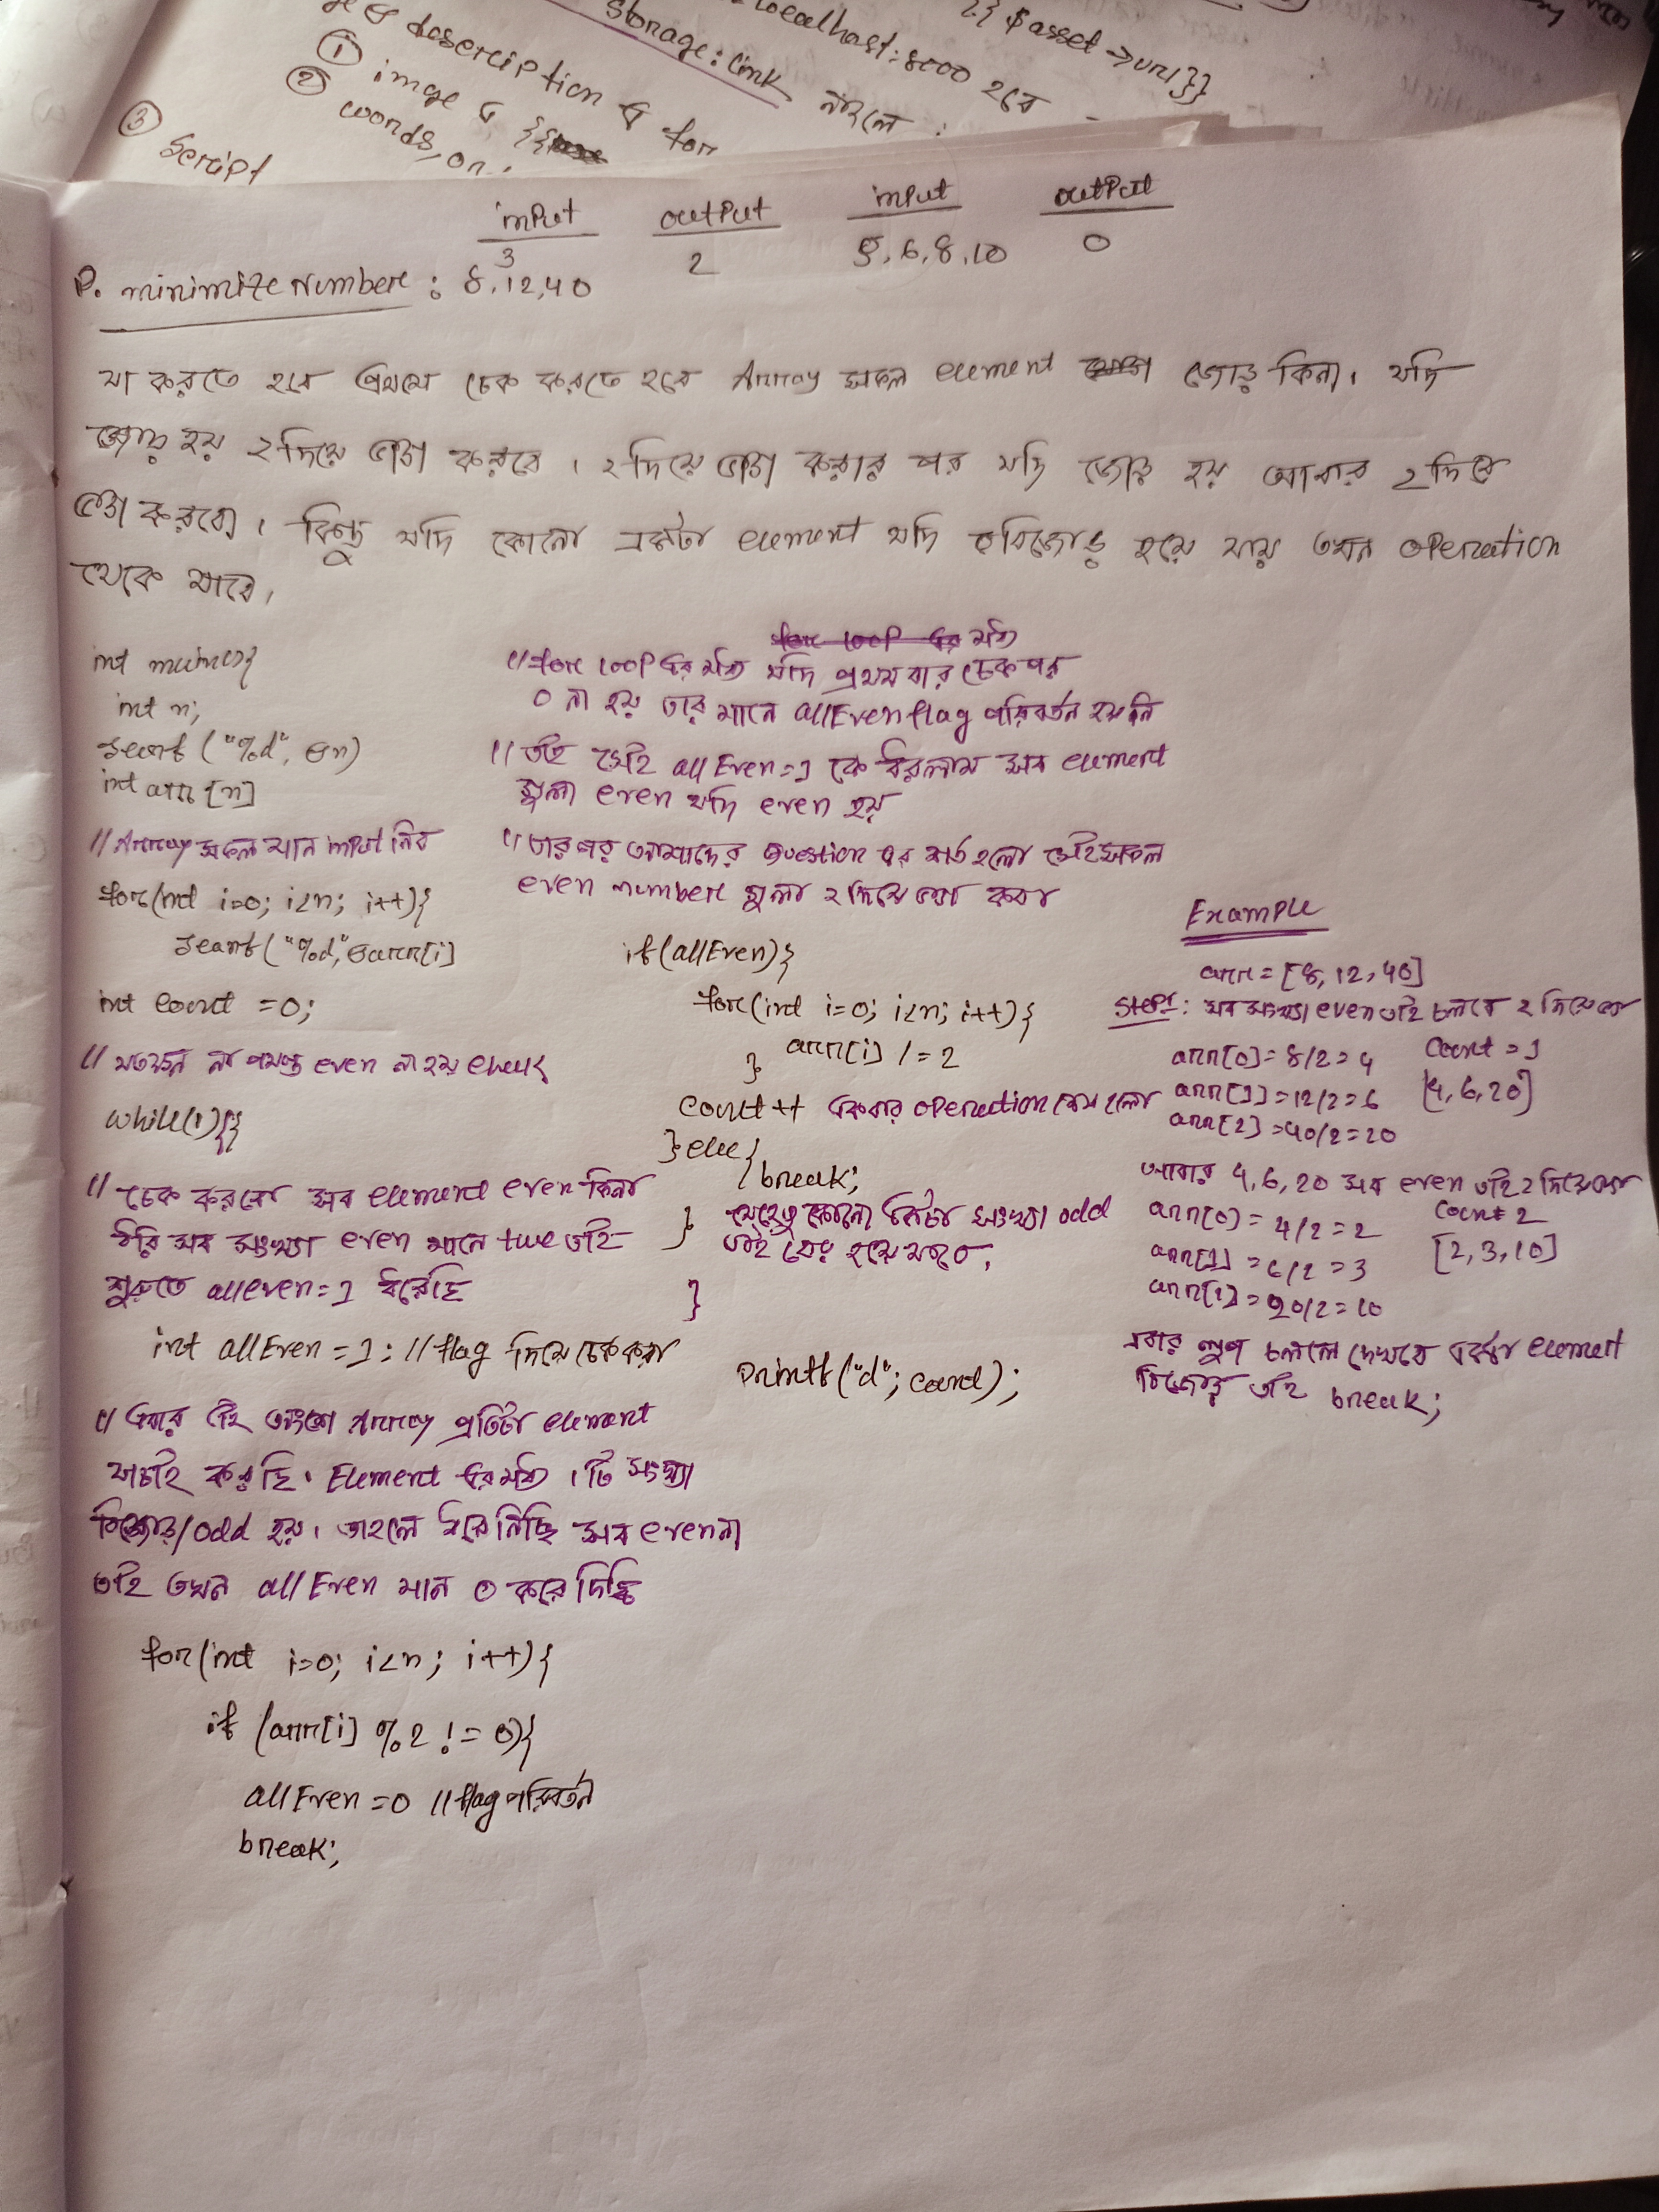 {{ $asset->url}}
localhost:8000 হবে
storage:link নাহলে
description এ for
① image এ {{
② words, on
③ script
input output input output
3 2 5,6,8,10 0
P. minimize Number: 8,12,40
যা করতে হবে প্রথমে চেক করতে হবে Array সকল element জোড় কিনা। যদি
জোড় হয় ২ দিয়ে ভাগ করবে। ২ দিয়ে ভাগ করার পর যদি জোড় হয় আবার ২ দিয়ে
ভাগ করবো। কিন্তু যদি কোনো একটা element যদি বিজোড় হয়ে যায় তখন operation
থেকে যাবে।
int main(){
int n;
scanf ("%d", &n)
int arr[n]
//Array সকল মান input নিব
for(int i=0; i<n; i++){
scanf("%d",&arr[i]
int count =0;
// যতক্ষন না পযন্ত even না হয় check
while(1){
// চেক করবো সব element even কিনা
ধরি সব সংখ্যা even মানে true তাই
শুরুতে alleven=1 ধরেছি
int allEven =1; //flag দিয়ে চেক করা
// এবার এই অংশে Array প্রতিটা element
যাচাই করছি। Element এর মধ্যে ১টি সংখ্যা
বিজোড়/odd হয়। তাহলে ধরে নিচ্ছি সব even না
তাই তখন allEven মান 0 করে দিচ্ছি
for(int i=0; i<n; i++){
if (arr[i] %2 != 0){
allEven =0 //flag পরিবর্তন
break;
for loop এর মধ্যে
//for loop এর মধ্যে যদি প্রথমবার চেক পর
0 না হয় তার মানে allEven flag পরিবর্তন হয়নি
// তাই সেই allEven=1 কে ধরলাম সব element
গুলা even যদি even হয়
// তারপর আমাদের question এর শর্ত হলো সেই সকল
even number গুলা ২ দিয়ে ভাগ করা
if(allEven){
for(int i=0; i<n; i++){
arr[i] /=2
}
count++ একবার operation শেষ হলো
}else{
break;
} যেহেতু কোনো একটা সংখ্যা odd
তাই বের হয়ে যাবে,
}
printf("d"; count);
Example
arr=[8,12,40]
Step1: সব সংখ্যা even তাই চলবে ২ দিয়ে ভাগ
arr[0]=8/2=4 Count =1
arr[1]=12/2=6 [4,6,20]
arr[2]=40/2=20
আবার 4,6,20 সব even তাই ২ দিয়ে ভাগ
arr[0]= 4/2=2 Count 2
arr[1] =6/2=3 [2,3,10]
arr[2]=20/2=10
এবার লুপ চললে দেখবে একটা element
বিজোড় তাই break;